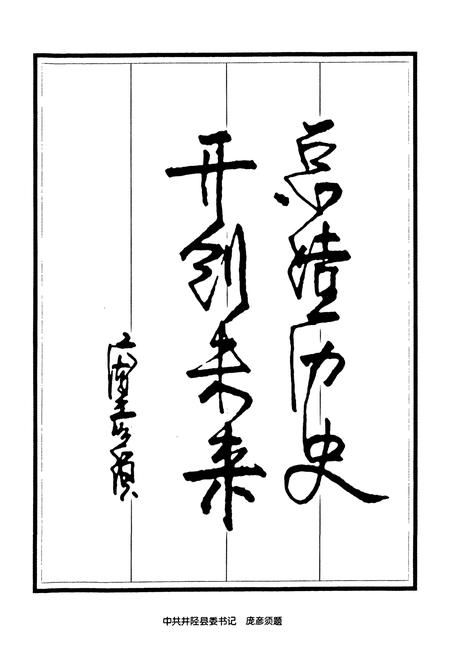 总结历史
开创未来
庞彦须
中共井陉县委书记 庞彦须题